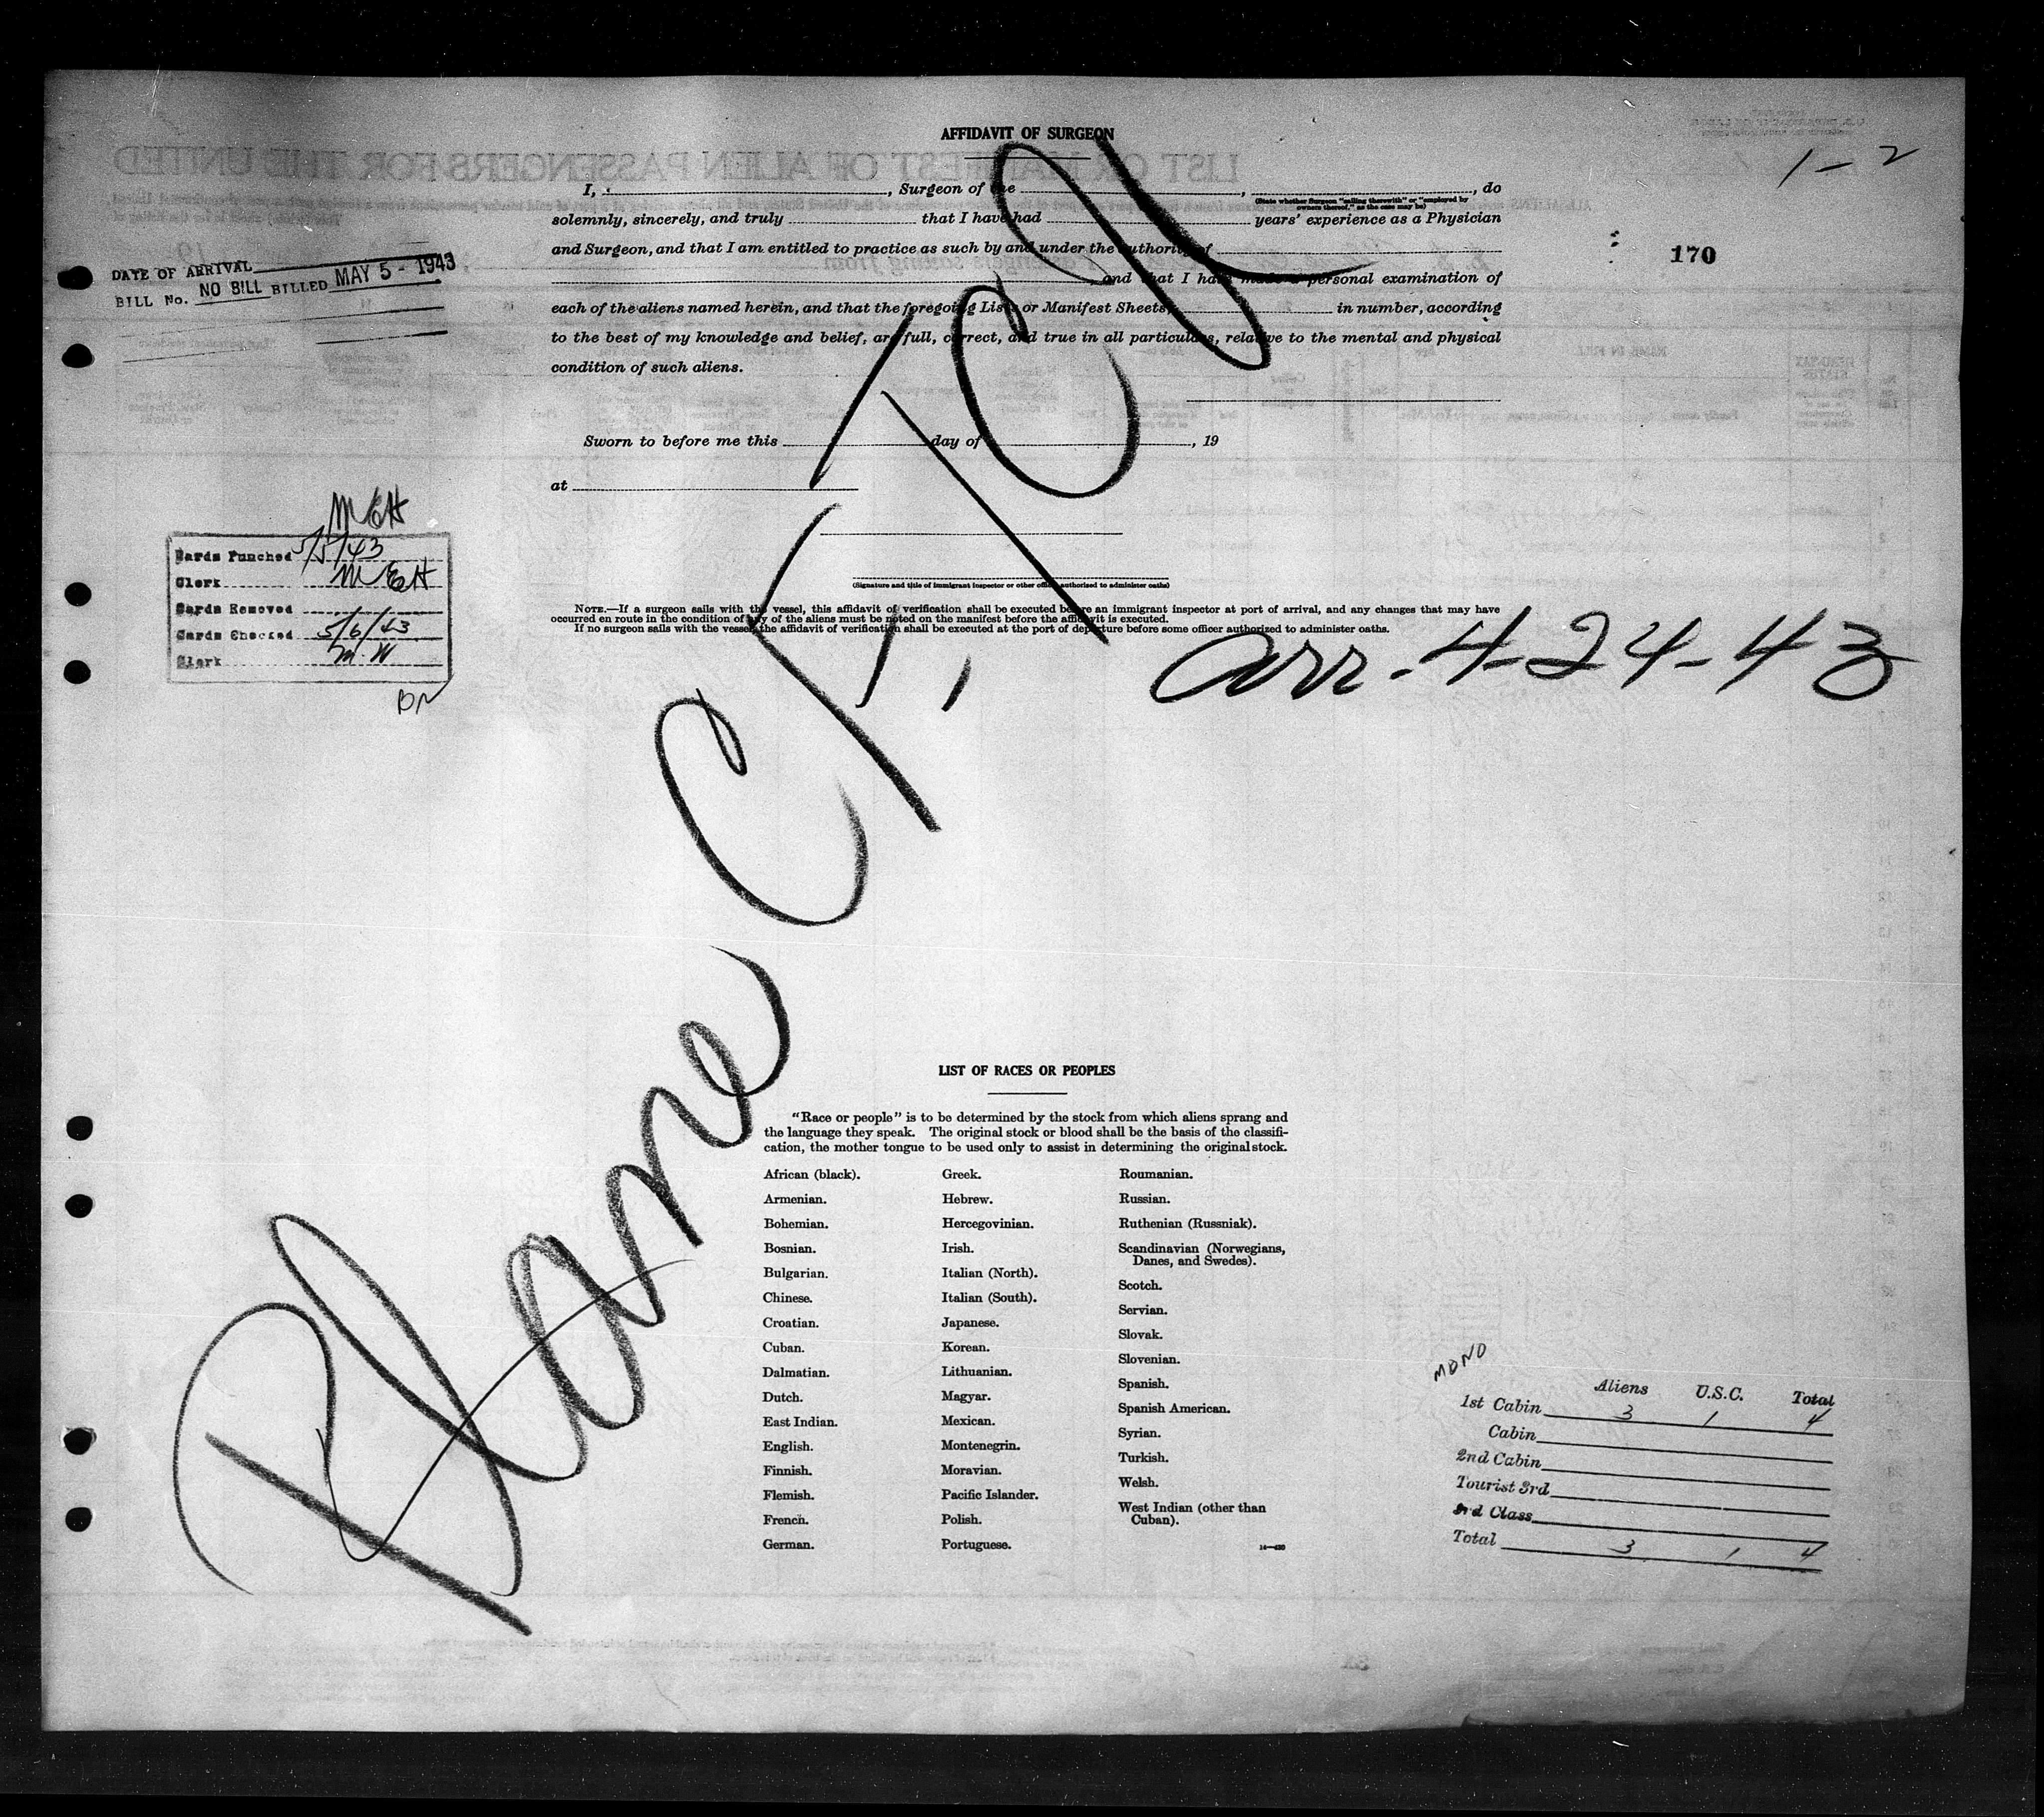 AFFIDAVIT OF SURGEON
1-2
I, , Surgeon of the , , do
(State whether Surgeon "sailing therewith" or "employed by
owners thereof," as the case may be)
solemnly, sincerely, and truly that I have had years' experience as a Physician
and Surgeon, and that I am entitled to practice as such by and under the authority of
170
, and that I have made a personal examination of
each of the aliens named herein, and that the foregoing Lists or Manifest Sheets, in number, according
to the best of my knowledge and belief, are full, correct, and true in all particulars, relative to the mental and physical
condition of such aliens.
DATE OF ARRIVAL
BILL No. NO BILL BILLED MAY 5 - 1943
Sworn to before me this day of , 19
at
(Signature and title of immigrant inspector or other officer authorized to administer oaths)
NOTE.—If a surgeon sails with the vessel, this affidavit of verification shall be executed before an immigrant inspector at port of arrival, and any changes that may have
occurred en route in the condition of any of the aliens must be noted on the manifest before the affidavit is executed.
If no surgeon sails with the vessel, the affidavit of verification shall be executed at the port of departure before some officer authorized to administer oaths.
MEH
Cards Punched 5/5/43
Clerk MEH
Cards Removed
Cards Checked 5/6/43
Clerk M W
BN
arr. 4-24-43
Plane
LIST OF RACES OR PEOPLES
"Race or people" is to be determined by the stock from which aliens sprang and
the language they speak. The original stock or blood shall be the basis of the classifi-
cation, the mother tongue to be used only to assist in determining the original stock.
African (black).
Armenian.
Bohemian.
Bosnian.
Bulgarian.
Chinese.
Croatian.
Cuban.
Dalmatian.
Dutch.
East Indian.
English.
Finnish.
Flemish.
French.
German.
Greek.
Hebrew.
Hercegovinian.
Irish.
Italian (North).
Italian (South).
Japanese.
Korean.
Lithuanian.
Magyar.
Mexican.
Montenegrin.
Moravian.
Pacific Islander.
Polish.
Portuguese.
Roumanian.
Russian.
Ruthenian (Russniak).
Scandinavian (Norwegians,
Danes, and Swedes).
Scotch.
Servian.
Slovak.
Slovenian.
Spanish.
Spanish American.
Syrian.
Turkish.
Welsh.
West Indian (other than
Cuban).
MOND
Aliens U.S.C. Total
1st Cabin 3 1 4
Cabin
2nd Cabin
Tourist 3rd
3rd Class
Total 3 1 4